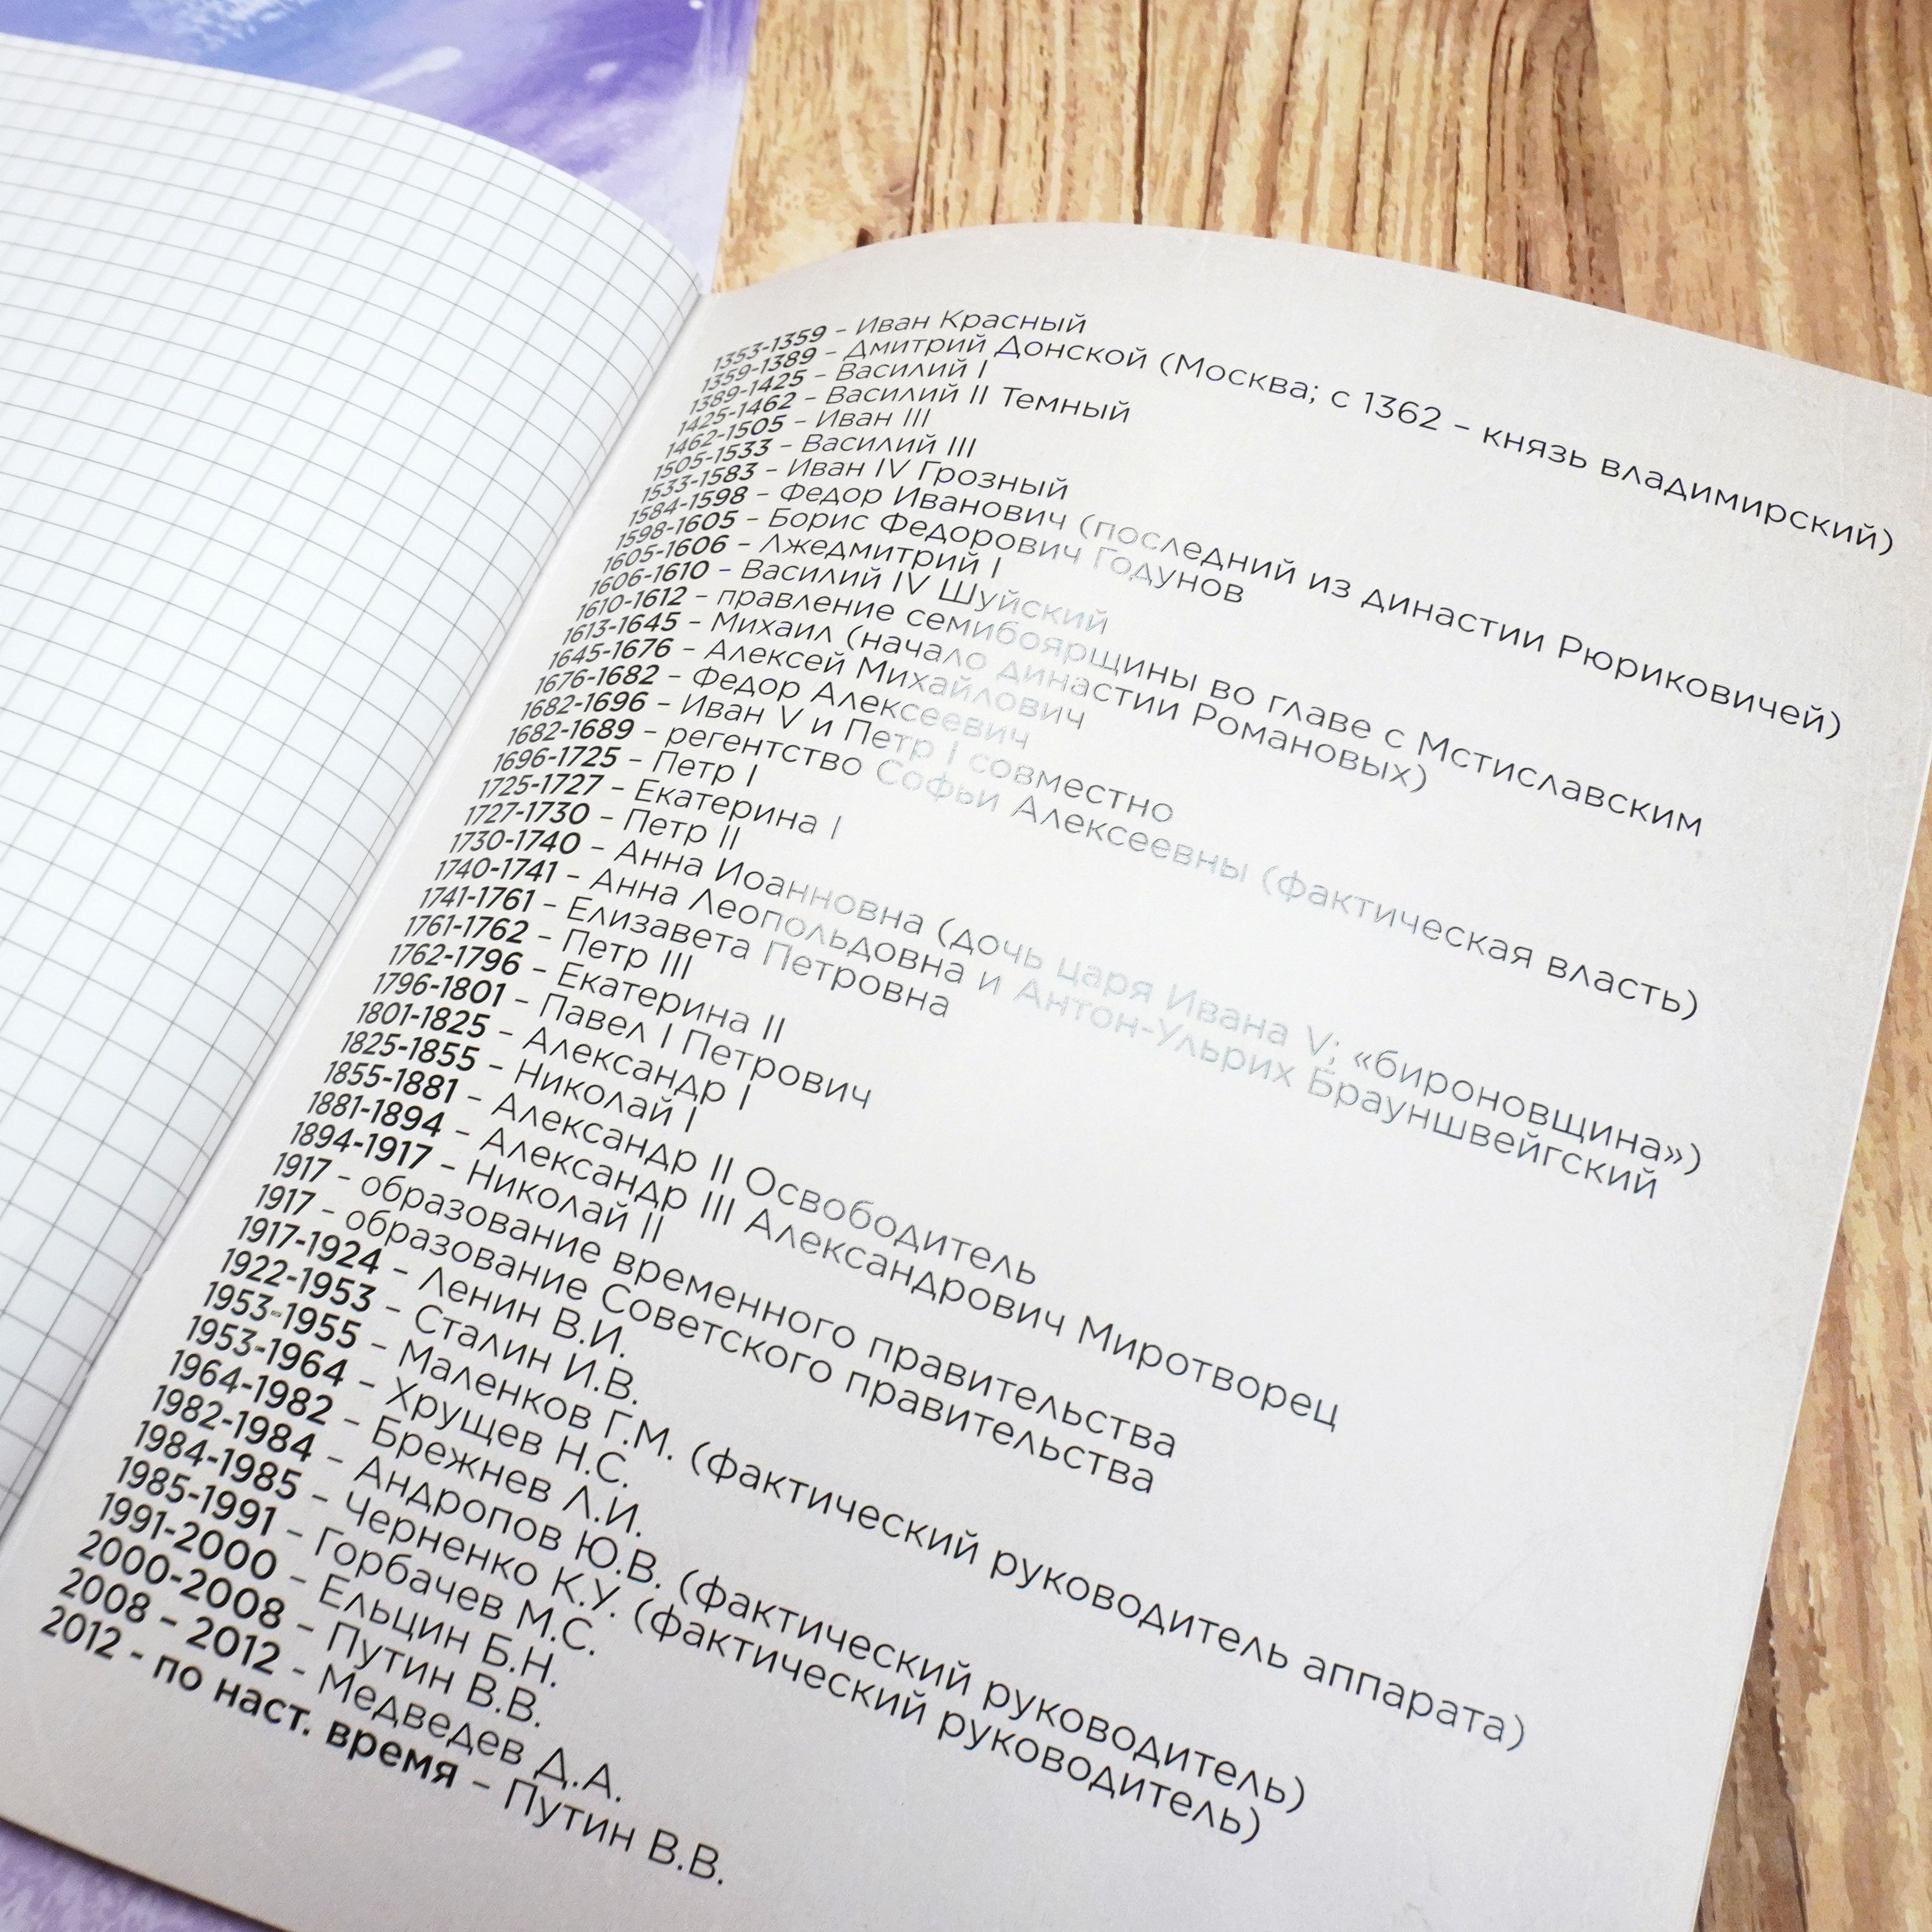 1353-1359 – Иван Красный
1359-1389 – Дмитрий Донской (Москва; с 1362 – князь владимирский)
1389-1425 – Василий I
1425-1462 – Василий II Темный
1462-1505 – Иван III
1505-1533 – Василий III
1533-1583 – Иван IV Грозный
1584-1598 – Федор Иванович (последний из династии Рюриковичей)
1598-1605 – Борис Федорович Годунов
1605-1606 – Лжедмитрий I
1606-1610 – Василий IV Шуйский
1610-1612 – правление семибоярщины во главе с Мстиславским
1613-1645 – Михаил (начало династии Романовых)
1645-1676 – Алексей Михайлович
1676-1682 – Федор Алексеевич
1682-1696 – Иван V и Петр I совместно
1682-1689 – регентство Софьи Алексеевны (фактическая власть)
1696-1725 – Петр I
1725-1727 – Екатерина I
1727-1730 – Петр II
1730-1740 – Анна Иоанновна (дочь царя Ивана V; «бироновщина»)
1740-1741 – Анна Леопольдовна и Антон-Ульрих Брауншвейгский
1741-1761 – Елизавета Петровна
1761-1762 – Петр III
1762-1796 – Екатерина II
1796-1801 – Павел I Петрович
1801-1825 – Александр I
1825-1855 – Николай I
1855-1881 – Александр II Освободитель
1881-1894 – Александр III Александрович Миротворец
1894-1917 – Николай II
1917 – образование временного правительства
1917 – образование Советского правительства
1917-1924 – Ленин В.И.
1922-1953 – Сталин И.В.
1953-1955 – Маленков Г.М. (фактический руководитель аппарата)
1953-1964 – Хрущев Н.С.
1964-1982 – Брежнев Л.И.
1982-1984 – Андропов Ю.В. (фактический руководитель)
1984-1985 – Черненко К.У. (фактический руководитель)
1985-1991 – Горбачев М.С.
1991-2000 – Ельцин Б.Н.
2000-2008 – Путин В.В.
2008 – 2012 – Медведев Д.А.
2012 - по наст. время – Путин В.В.